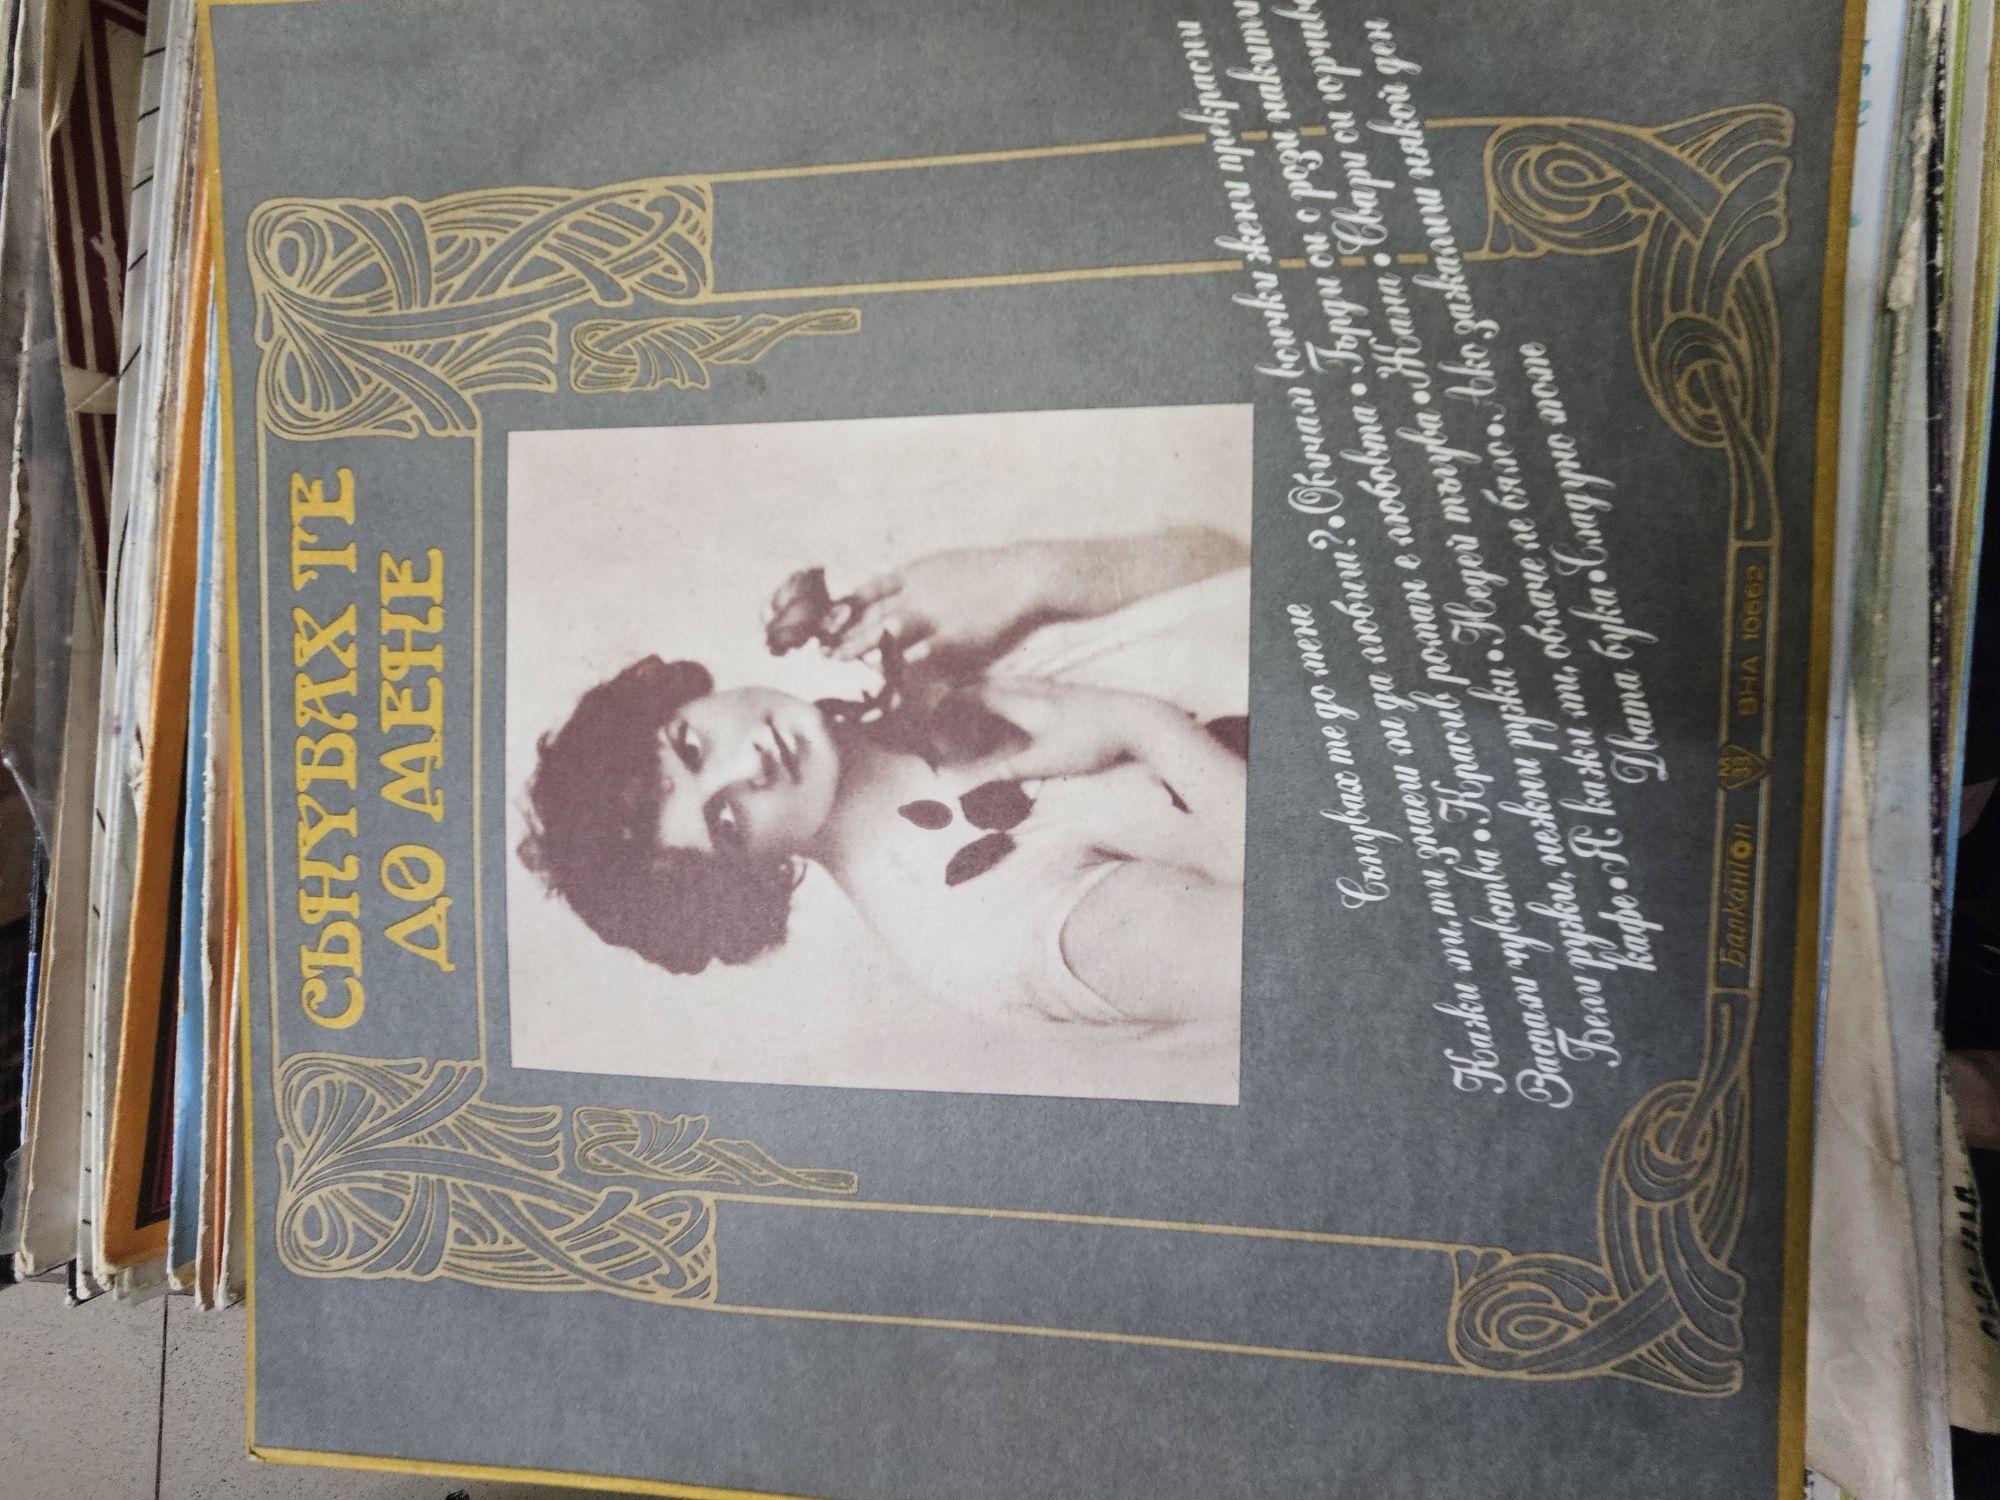 СЪНУВАХ ТЕ
ДО МЕНЕ
Сънувах те до мене
Кажи ми, ти знаеш ли да любиш? • Обичам всички жени прекрасни
Заспали чувства • Красив роман е любовта • Гърди си с рози накити
Бели ружи, нежни ружи • Недей тъгува • Жана • Свари си горчиво
кафе • Я кажи ми, облаче ле бяло • Ако зажалиш някой ден
Двата бука • Сладуно моме
Балкантон М 33 ВНА 10662